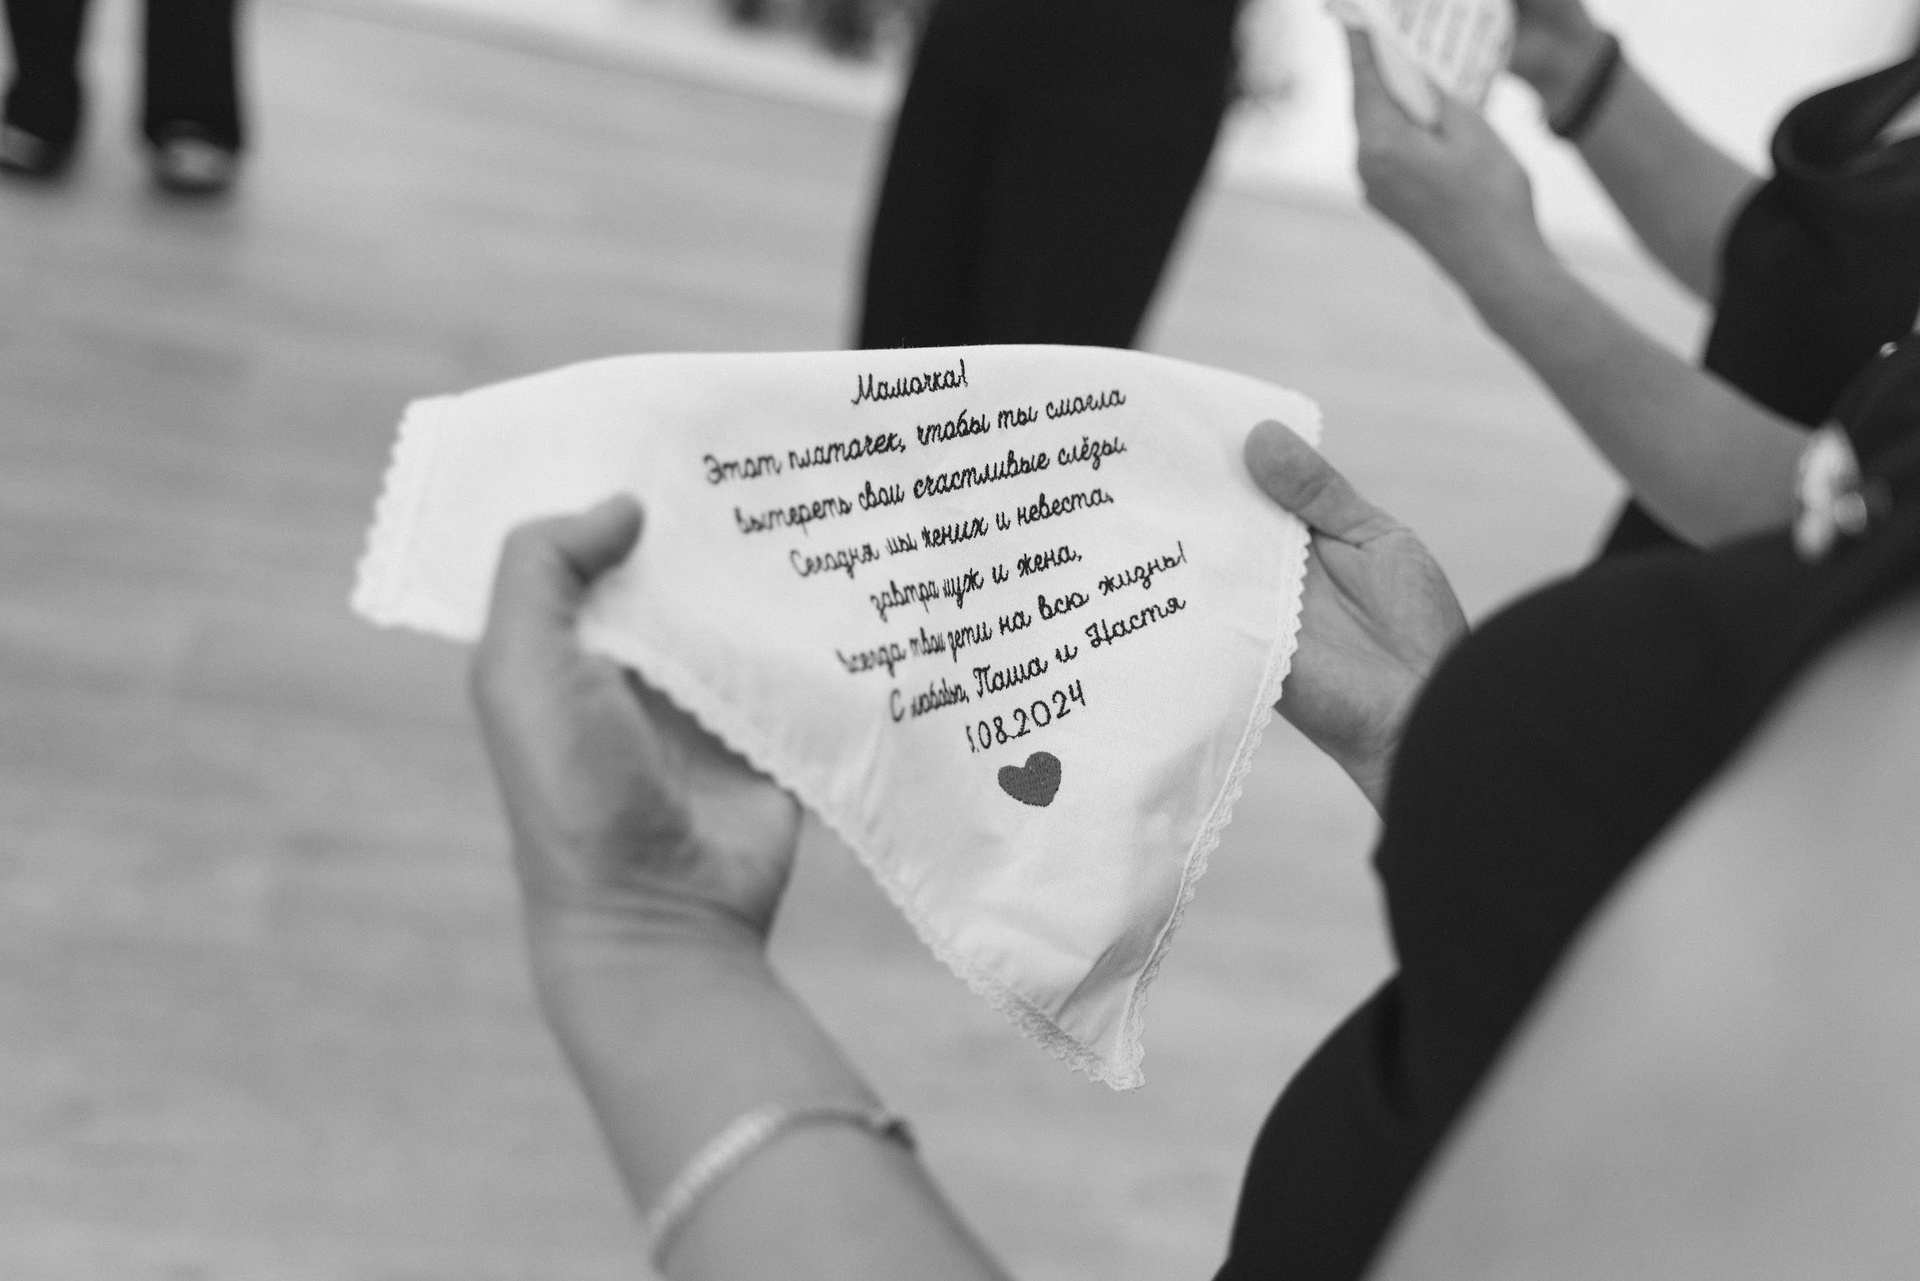 Мамочка!
Этот платочек, чтобы ты смогла
вытереть свои счастливые слёзы.
Сегодня мы жених и невеста,
завтра муж и жена,
всегда твои дети на всю жизнь!
С любовью, Паша и Настя
1.08.2024